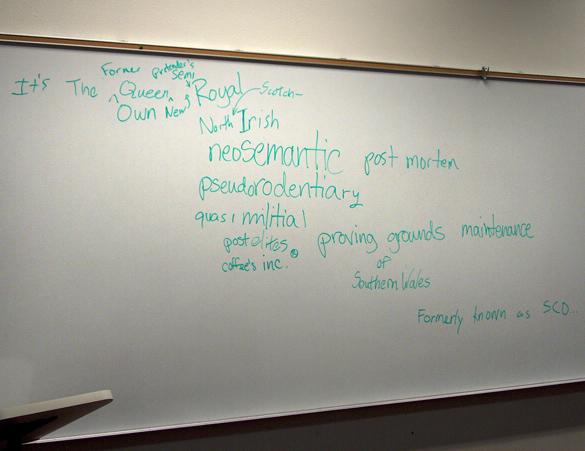 Former pretender's
semi
It's The Queen Royal Scotch-
Own New
North Irish
neosemantic post mortem
pseudorodentiary
quasimilitial
postelites proving grounds maintenance
coffee's inc. of
Southern Wales
Formerly known as SCO...